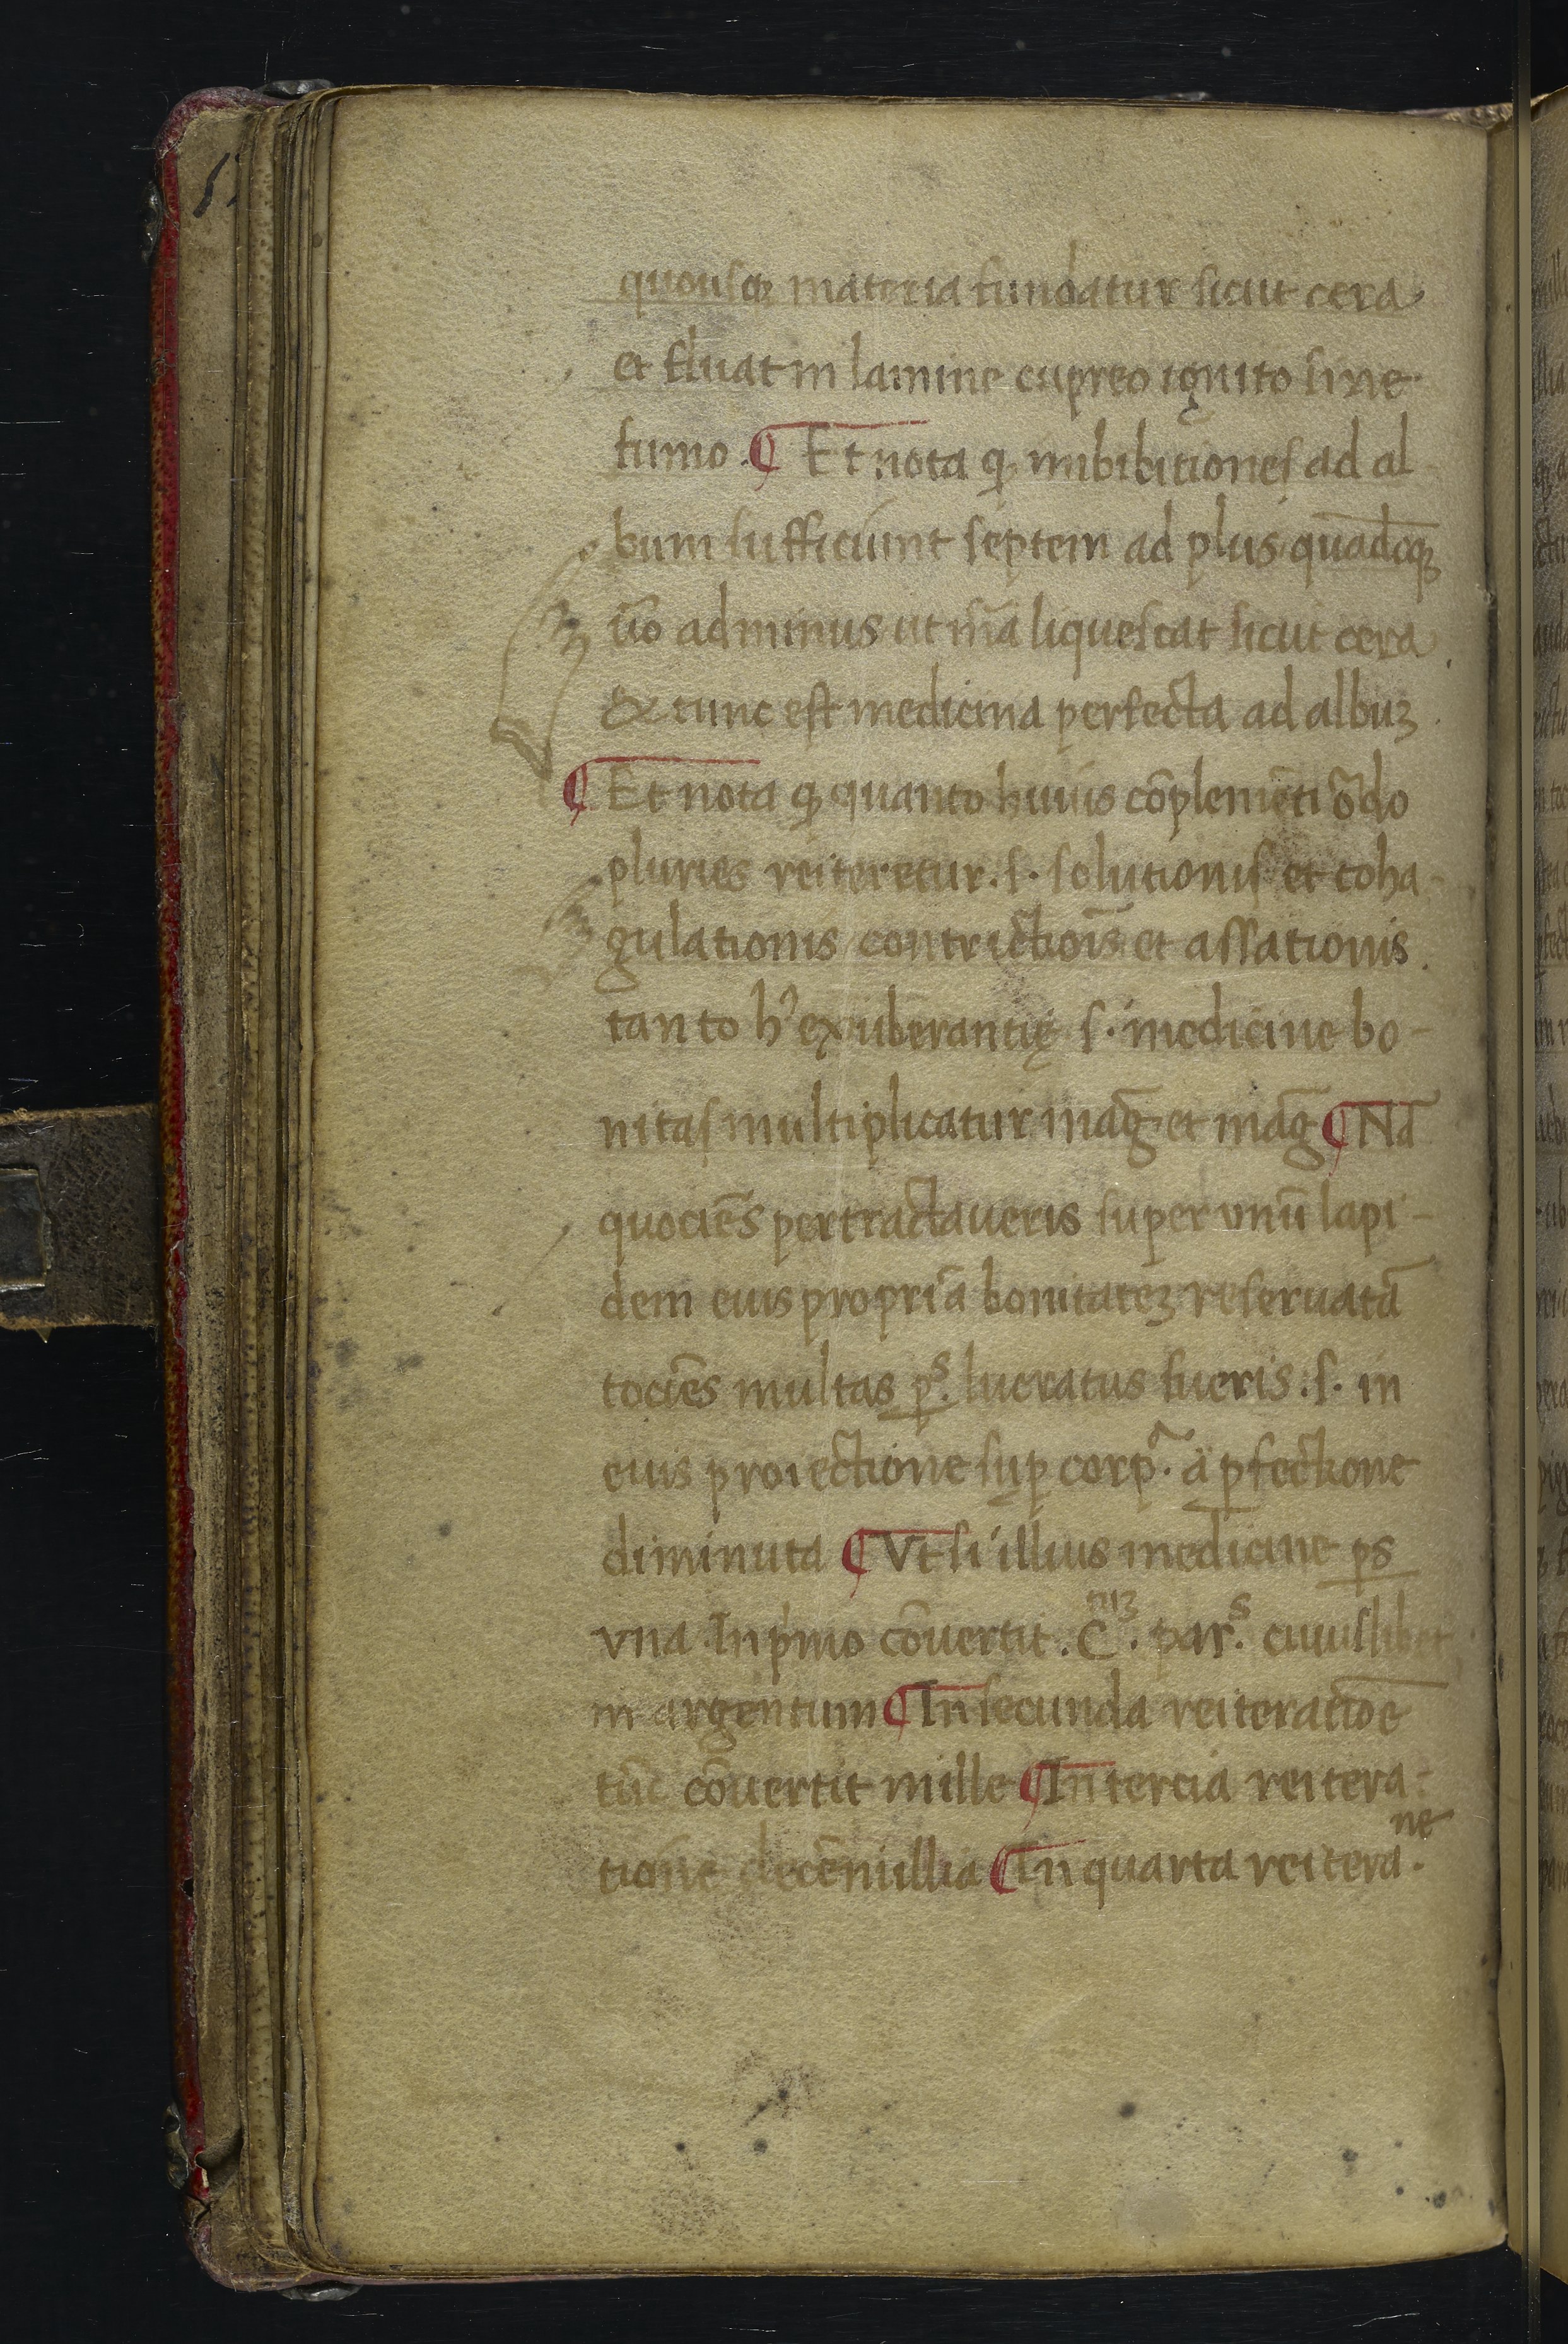 quousqꝫ materia fundatur sicut cera
et fluat in lamine cupreo ignito sine
fumo. ¶ Et nota ꝙ imbibitiones ad al
bum sufficiunt septem ad plus
ūo ad minus ut mā liquescat sicut cera
& tunc est medicina perfecta ad albuꝫ.
¶ Et nota ꝙ quanto huius cōplemēti ōdo
pluries reiteretur. s. solutionis et coha-
gulationis contrictiōis et assationis.
tanto h' exuberantię s. medicine bo-
nitas multiplicatur mag̃ et mag̃ ¶ Nā
quociēs pertractaueris super vnū lapi-
dem euis propriā bonitateꝫ reseruatā
tociēs multas p̱ˢ. lucratus fueris. s. in
euis proiectione suꝑ corpᵃ. a ꝑfectione
diminuta ¶ Vt si illius medicine ꝑs
vna In pͥmo cōuertit. C. parˢ. cuiuslibet
in argentum ¶ In secunda reiteratiōe
tūc cōuertit mille ¶ In tercia reitera-
tione decēmillia ¶ In quarta reitera.ne